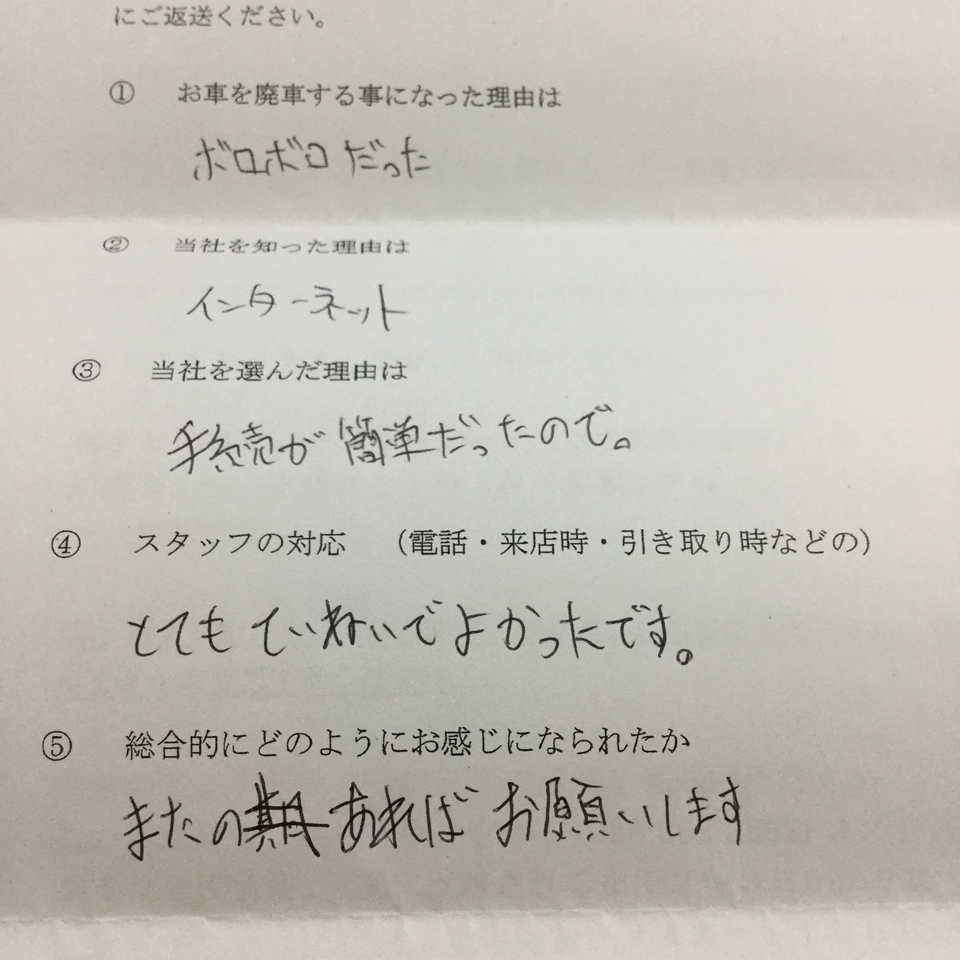 にご返送ください。
① お車を廃車する事になった理由は
ボロボロだった
② 当社を知った理由は
インターネット
③ 当社を選んだ理由は
手続売が簡単だったので。
④ スタッフの対応 （電話・来店時・引き取り時などの）
とてもていねいでよかったです。
⑤ 総合的にどのようにお感じになられたか
またの期あればお願いします